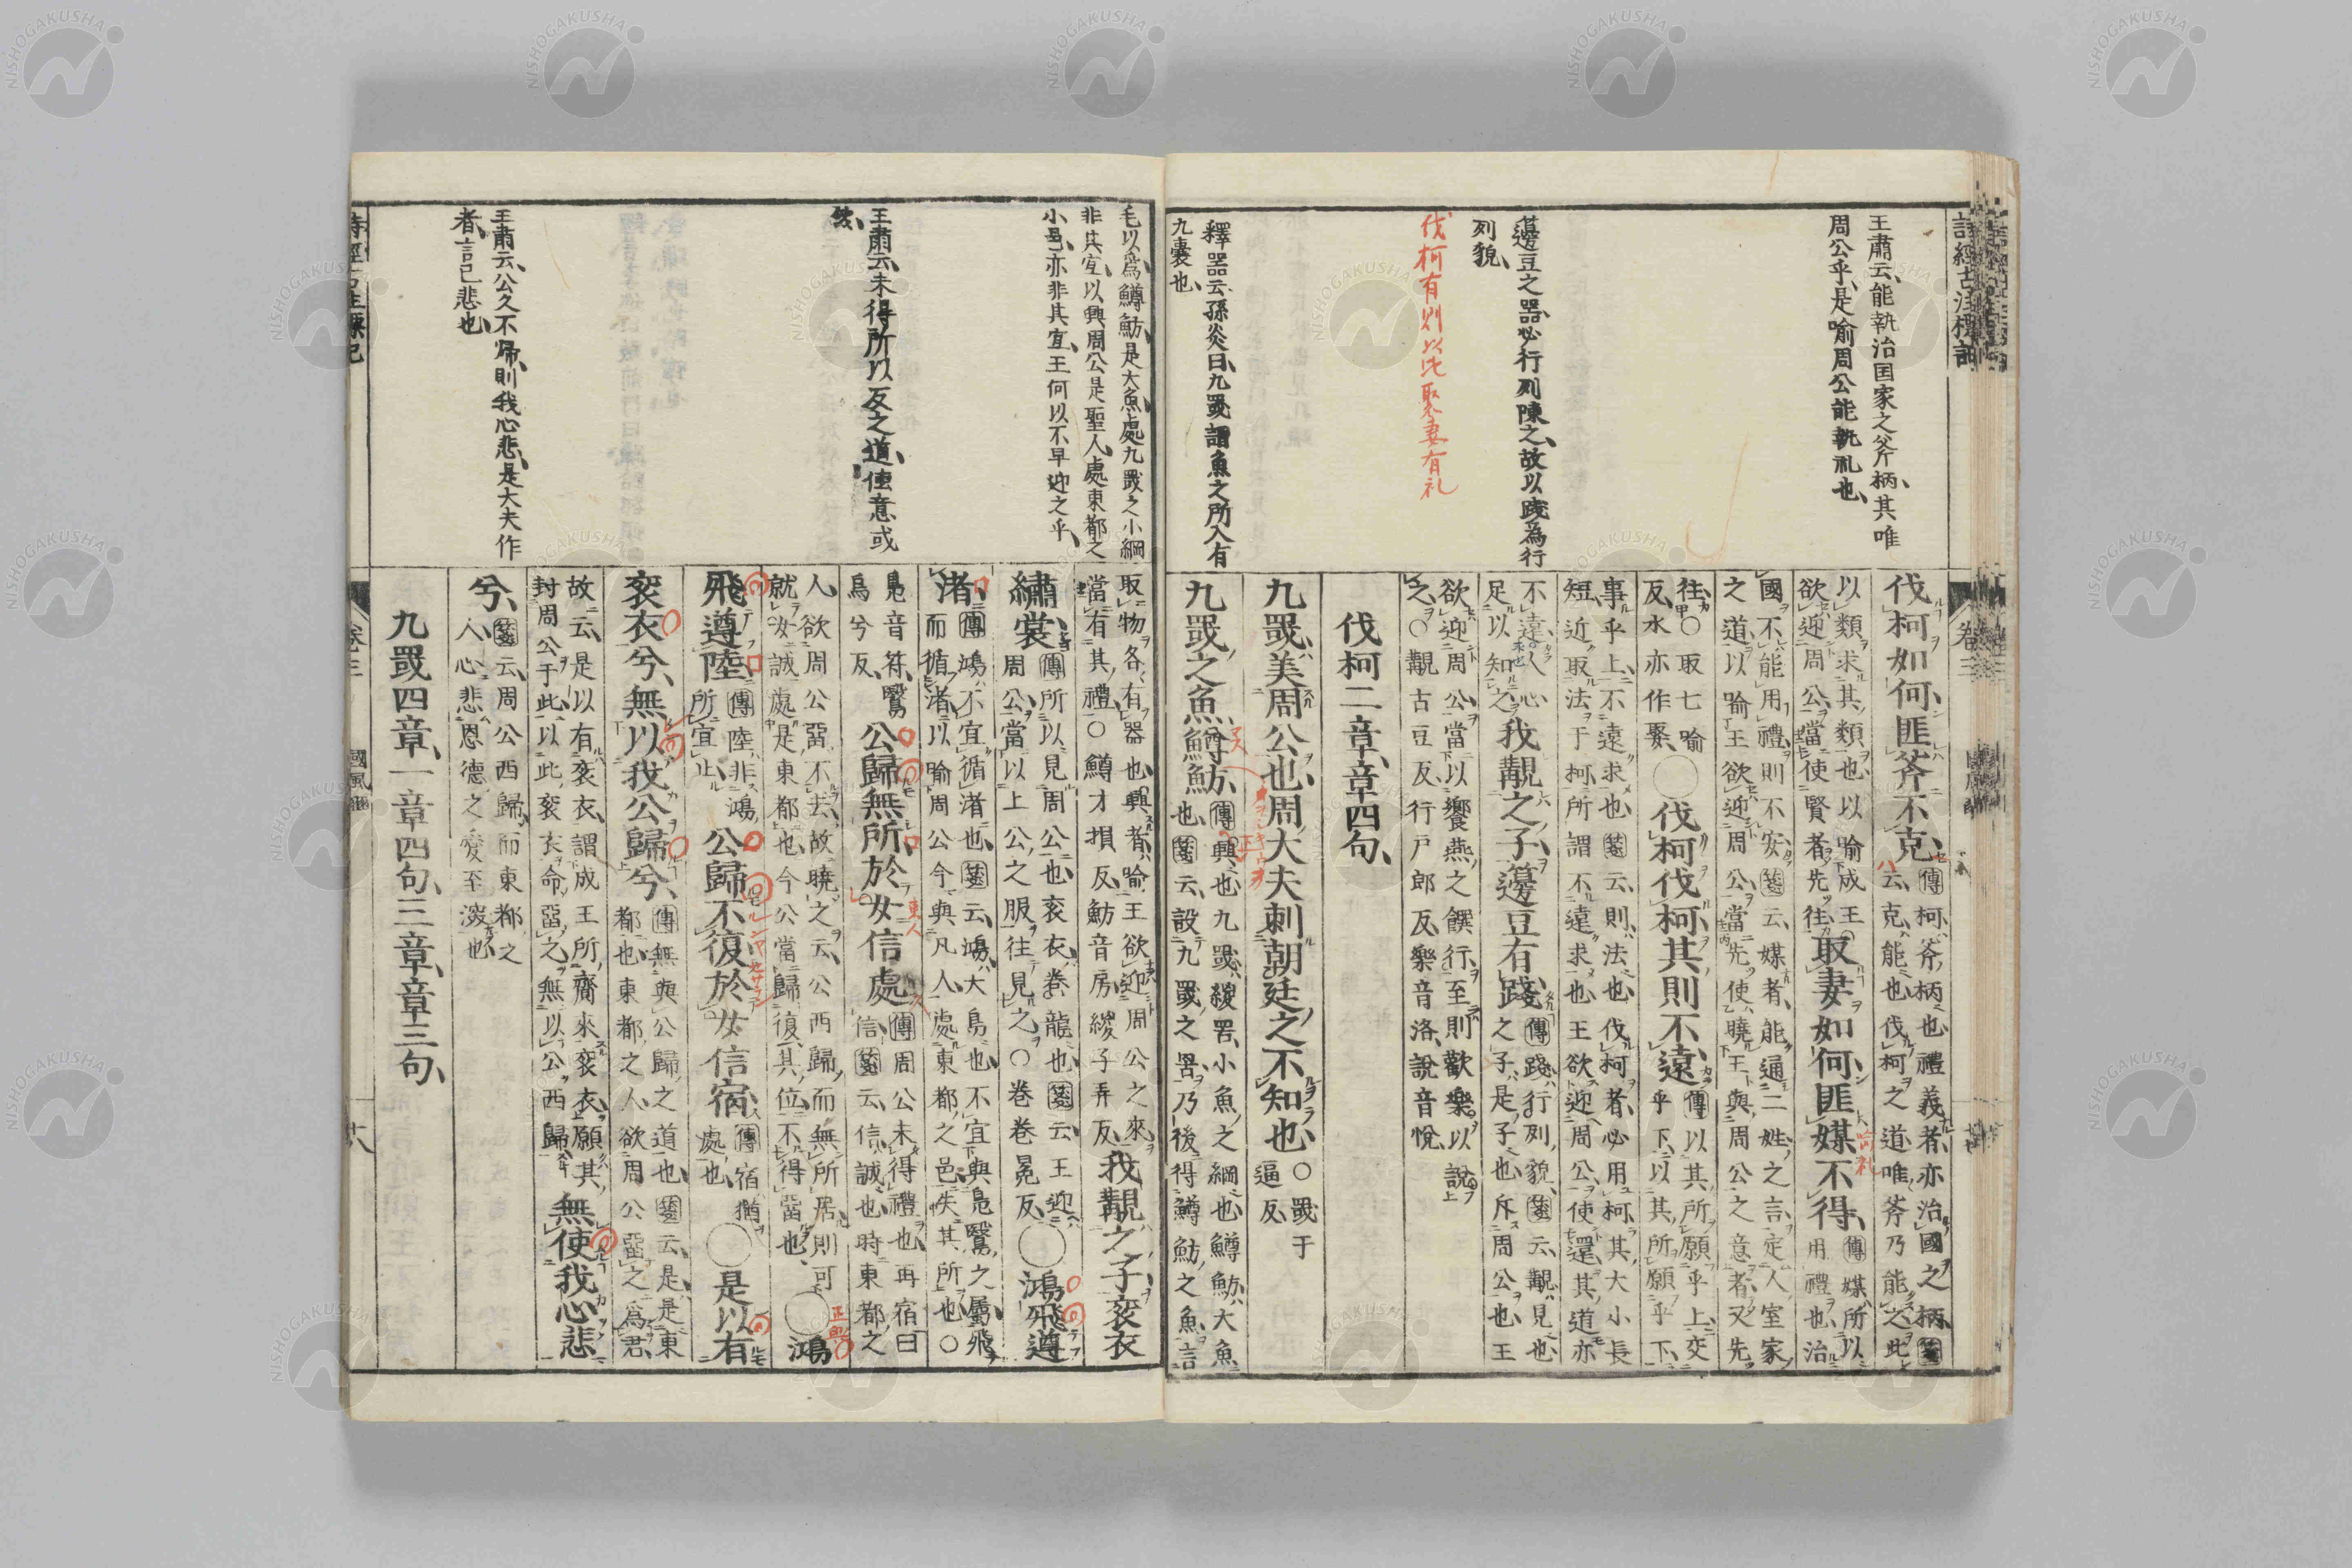 詩經古注標記
王肅云、能執治国家之斧柄、其唯
周公乎、是喻周公能執礼也、
籩豆之器、必行列陳之、故以踐爲行
列貌、
伐柯有則以此娶妻有礼
釋器云、孫炎曰、九罭謂魚之所入有
九囊也、
卷三
國風豳
伐柯如何、匪斧不克、傳柯、斧柄也、禮義者、亦治國之柄、箋
云、克、能也、伐柯之道、唯斧乃能之、此
以類求其類也、以喻成王
欲迎周公、當使賢者先往、取妻如何、匪媒不得、傳媒、所以
用禮也、治
國不能用禮、則不安、箋云、媒者、能通二姓之言、定人室家
之道、以喻王欲迎周公、當先使曉王與周公之意者、又先
往、○取七喻
反、亦作娶、○伐柯伐柯、其則不遠、傳以其所願乎上、交
乎下、以其所願乎下、
事乎上、不遠求也、箋云、則、法也、伐柯者、必用柯、其大小長
短、近取法于柯、所謂不遠求也、王欲迎周公、使還、其道亦
不遠、人心
足以知之、我覯之子、籩豆有踐、傳踐、行列貌、箋云、覯、見也、
之子、是子也、斥周公也、王
欲迎周公、當以饗燕之饌行、至則歡樂以說
之、○覯古豆反、行戸郎反、樂音洛、說音悅
伐柯二章、章四句、
九罭、美周公也、周大夫刺朝廷之不知也、○罭于
逼反、
九罭之魚、鱒魴、傳興也、九罭、緵罟、小魚之網也、鱒魴、大魚
也、箋云、設九罭之罟、乃後得鱒魴之魚、言
毛以爲、鱒魴是大魚、處九罭之小網
非其宜、以興周公是聖人、處東都之
小邑、亦非其宜、王何以不早迎之乎、
王肅云、未得所以反之道、使意或
然、
王肅云、公久不歸、則我心悲、是大夫作
者、言已悲也、
取物各有器也、興者、喻王欲迎周公之來、
當有其禮、○鱒才損反、魴音房、緵子弄反、我覯之子、袞衣
繡裳、傳所以見周公也、袞衣、卷龍也、箋云、王迎
周公、當以上公之服往見之、○卷卷冕反、○鴻飛遵
渚、傳鴻、不宜循渚也、箋云、鴻、大鳥也、不宜與鳧鷖之屬、飛
而循渚、以喻周公今與凡人處東都之邑、失其所也、○
鳧音符、鷖
烏兮反、公歸無所、於女信處、傳周公未得禮也、再宿曰
信、箋云、信、誠也、時東都之
人、欲周公畱不去、故曉之云、公西歸、而無所居、則可
就女誠處、是東都也、今公當歸復其位、不得畱也、○鴻
飛遵陸、傳陸、非鴻
所宜止、公歸不復、於女信宿、傳宿、猶
處也、○是以有
袞衣兮、無以我公歸兮、傳無與公歸之道也、箋云、是、是東
都也、東都之人、欲周公畱之爲君、
故云、是以有袞衣、謂成王所齎來袞衣、願其
封周公于此、以此袞衣命畱之、無以公西歸、無使我心悲
兮、箋云、周公西歸、而東都之
人、心悲、恩德之愛至深也、
九罭四章、一章四句、三章、章三句、